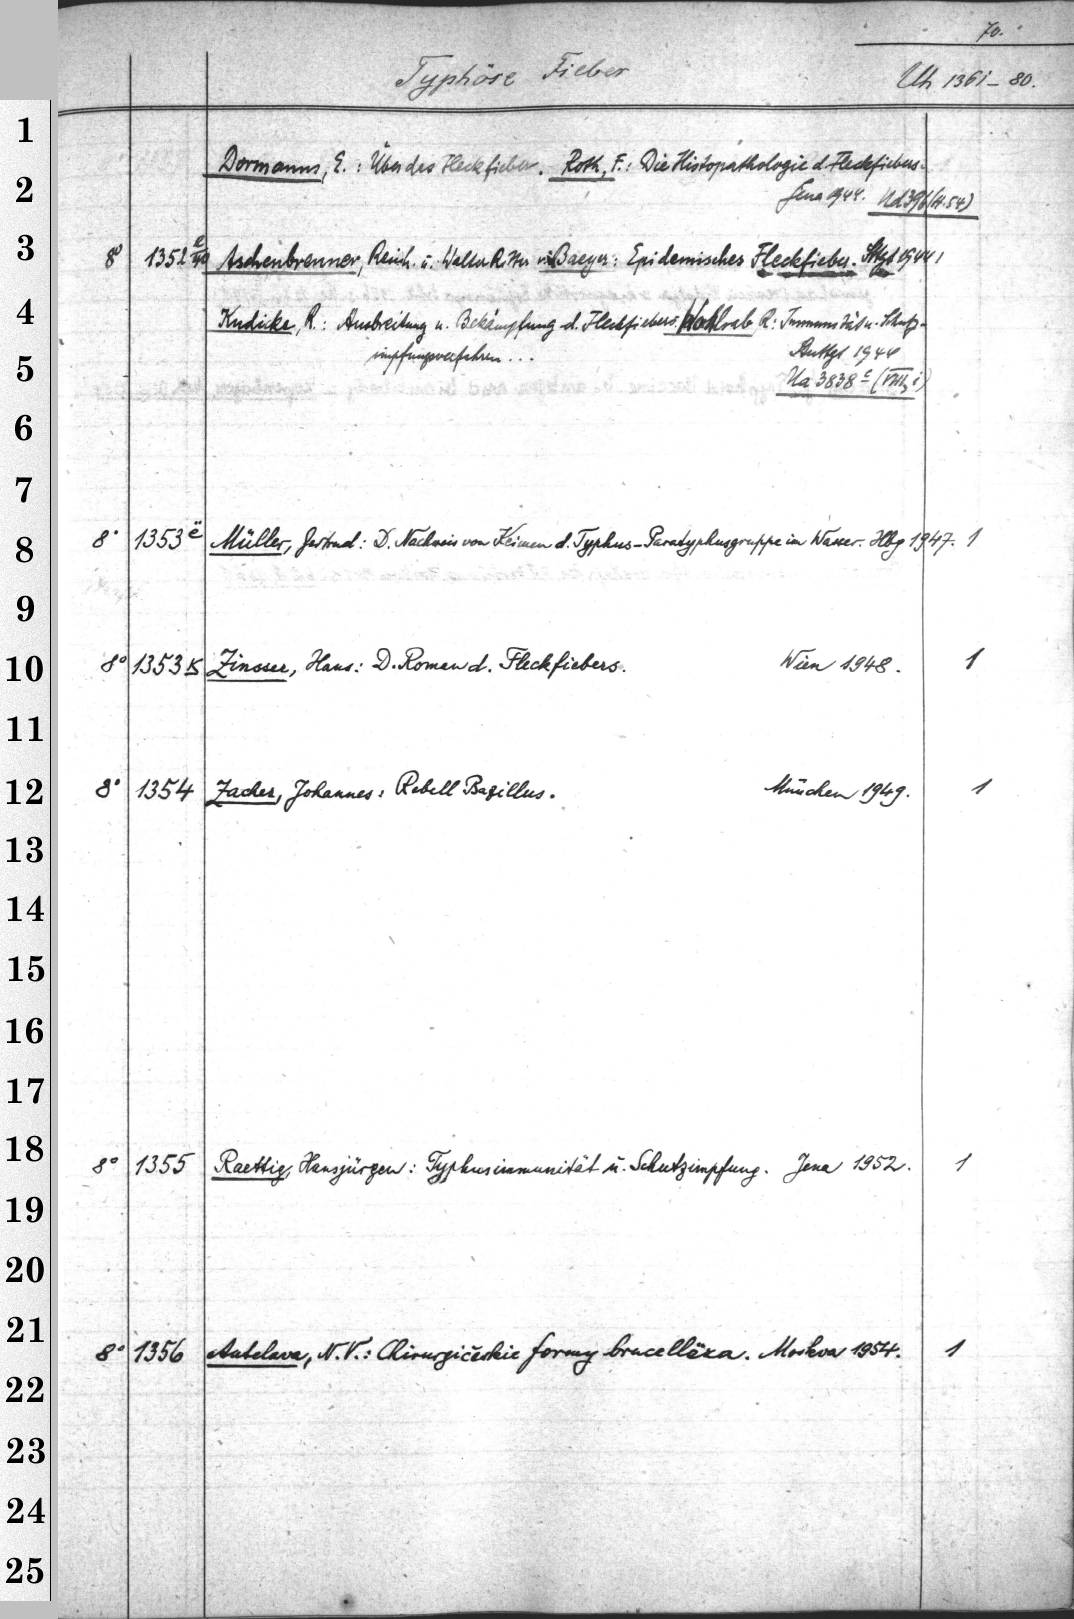 70.
Typhöse Fieber
Uh 1361-80.
Dormanns, E.: Über das Fleckfieber. Roth, F.: Die Histopathologie d. Fleckfiebers.
Jena 1944. Ud 396 (H. 54)
8° 1352 Aschenbrenner, Reinh. u. Walter Ritter v. Baeyer: Epidemisches Fleckfieber. Sttgt 1944 1
Kudicke, R.: Ausbreitung u. Bekämpfung d. Fleckfiebers. Wohlrab R: Immunität u. Schutz-
impfungsverfahren... Stuttgt 1944
Ua 3838 c (VIII, i)
8° 1353 ë Müller, Gertrud: D. Nachweis von Keimen d. Typhus-Paratyphusgruppe im Wasser. Hbg 1947. 1
8° 1353 Zinsser, Hans: D. Roman d. Fleckfiebers. Wien 1948. 1
8° 1354 Zacher, Johannes: Rebell Bazillus. München 1949. 1
8° 1355 Raettig, Hansjürgen: Typhusimmunität u. Schutzimpfung. Jena 1952. 1
8° 1356 Antelava, N.V.: Chirurgičeskie formy brucellëza. Moskva 1954. 1
1
2
3
4
5
6
7
8
9
10
11
12
13
14
15
16
17
18
19
20
21
22
23
24
25